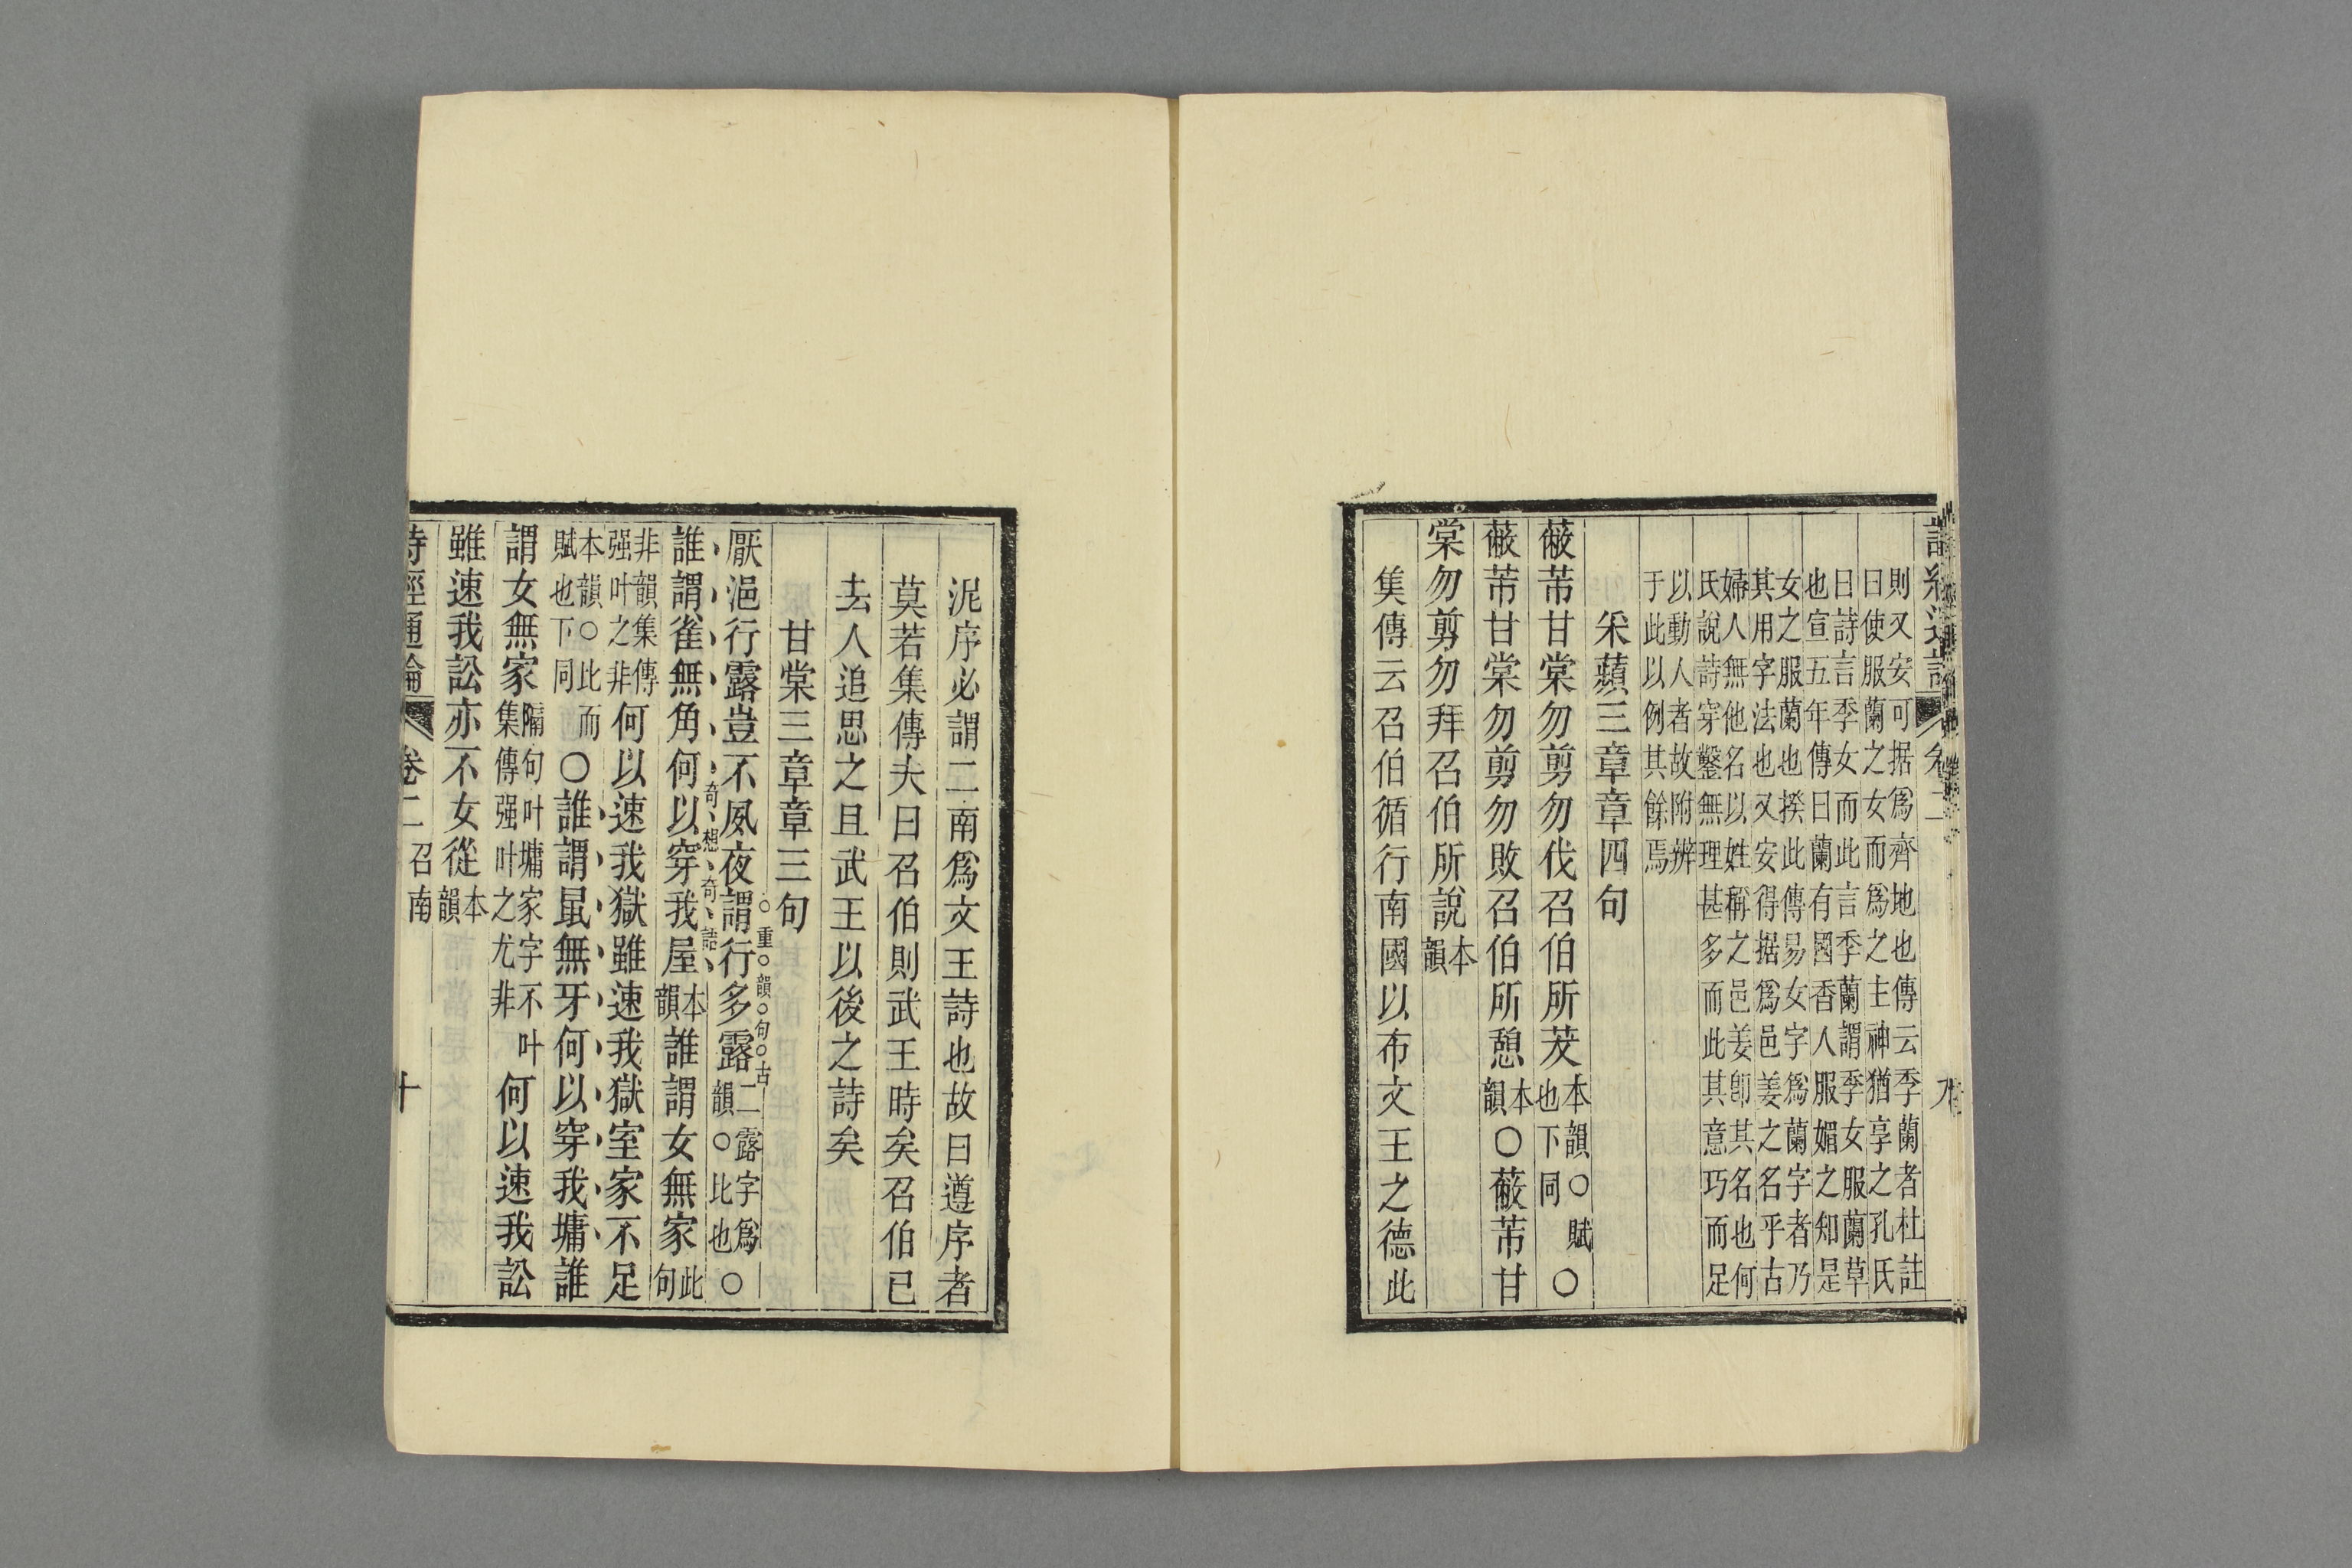 詩經通論 卷二 九
則又安可据爲齊地也傳云季蘭者杜註
曰使服蘭之女而爲之主神猶享之孔氏
曰詩言季女而此言季蘭謂季女服蘭草
也宣五年傳曰蘭有國香人服媚之知是
女之服蘭也揆此傳易女字爲蘭字者乃
其用字法也又安得据爲邑姜之名乎古
婦人無他名以姓稱之邑姜卽其名也何
氏說詩穿鑿無理甚多而此其意巧而足
以動人者故附辨
于此以例其餘焉
采蘋三章章四句
蔽芾甘棠勿剪勿伐召伯所茇本韻○賦也下同○
蔽芾甘棠勿剪勿敗召伯所憩本韻○蔽芾甘
棠勿剪勿拜召伯所說本韻
集傳云召伯循行南國以布文王之德此
泥序必謂二南爲文王詩也故曰遵序者
莫若集傳夫曰召伯則武王時矣召伯已
去人追思之且武王以後之詩矣
甘棠三章章三句
厭浥行露豈不夙夜謂行多露二露字爲韻○比也○
重韻句古
誰謂雀無角何以穿我屋本韻誰謂女無家此句
奇想奇語
非韻集傳强叶之非何以速我獄雖速我獄室家不足
本韻○此比而賦也下同○誰謂鼠無牙何以穿我墉誰
謂女無家隔句叶墉家字不叶集傳强叶之尤非何以速我訟
雖速我訟亦不女從本韻
詩經通論 卷二 召南 十